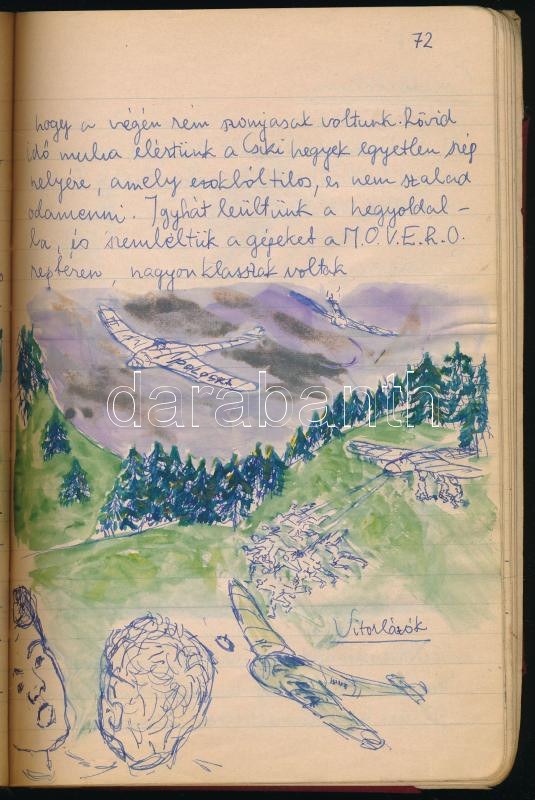 72
hogy a végén rém szonyasak voltunk. Rövid
idő mulva elértünk a Csiki hegyek egyetlen szép
helyére, amely ezokból tilos, és nem szabad
odamenni. Igyhát leültünk a hegyoldal-
ba, és szemléltük a gépeket a M.O.V.E.R.O.
reptéren, nagyon klasszak voltak
POLOSKA
darabanth
Vitorlázók